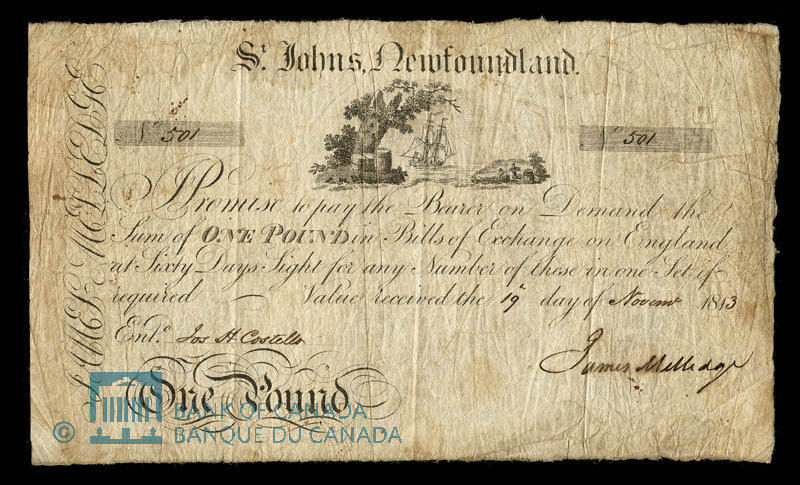 St. Johns, Newfoundland.
No 501
No 501
JAMES MELLEDGE
I Promise to pay the Bearer on Demand the
Sum of ONE POUND in Bills of Exchange on England
at Sixty Days Sight for any Number of these in one Set if
required Value received the 19 day of Novemr 1813
Entd. Jos H. Costello
James Melledge
One Pound
© BANK OF CANADA
BANQUE DU CANADA